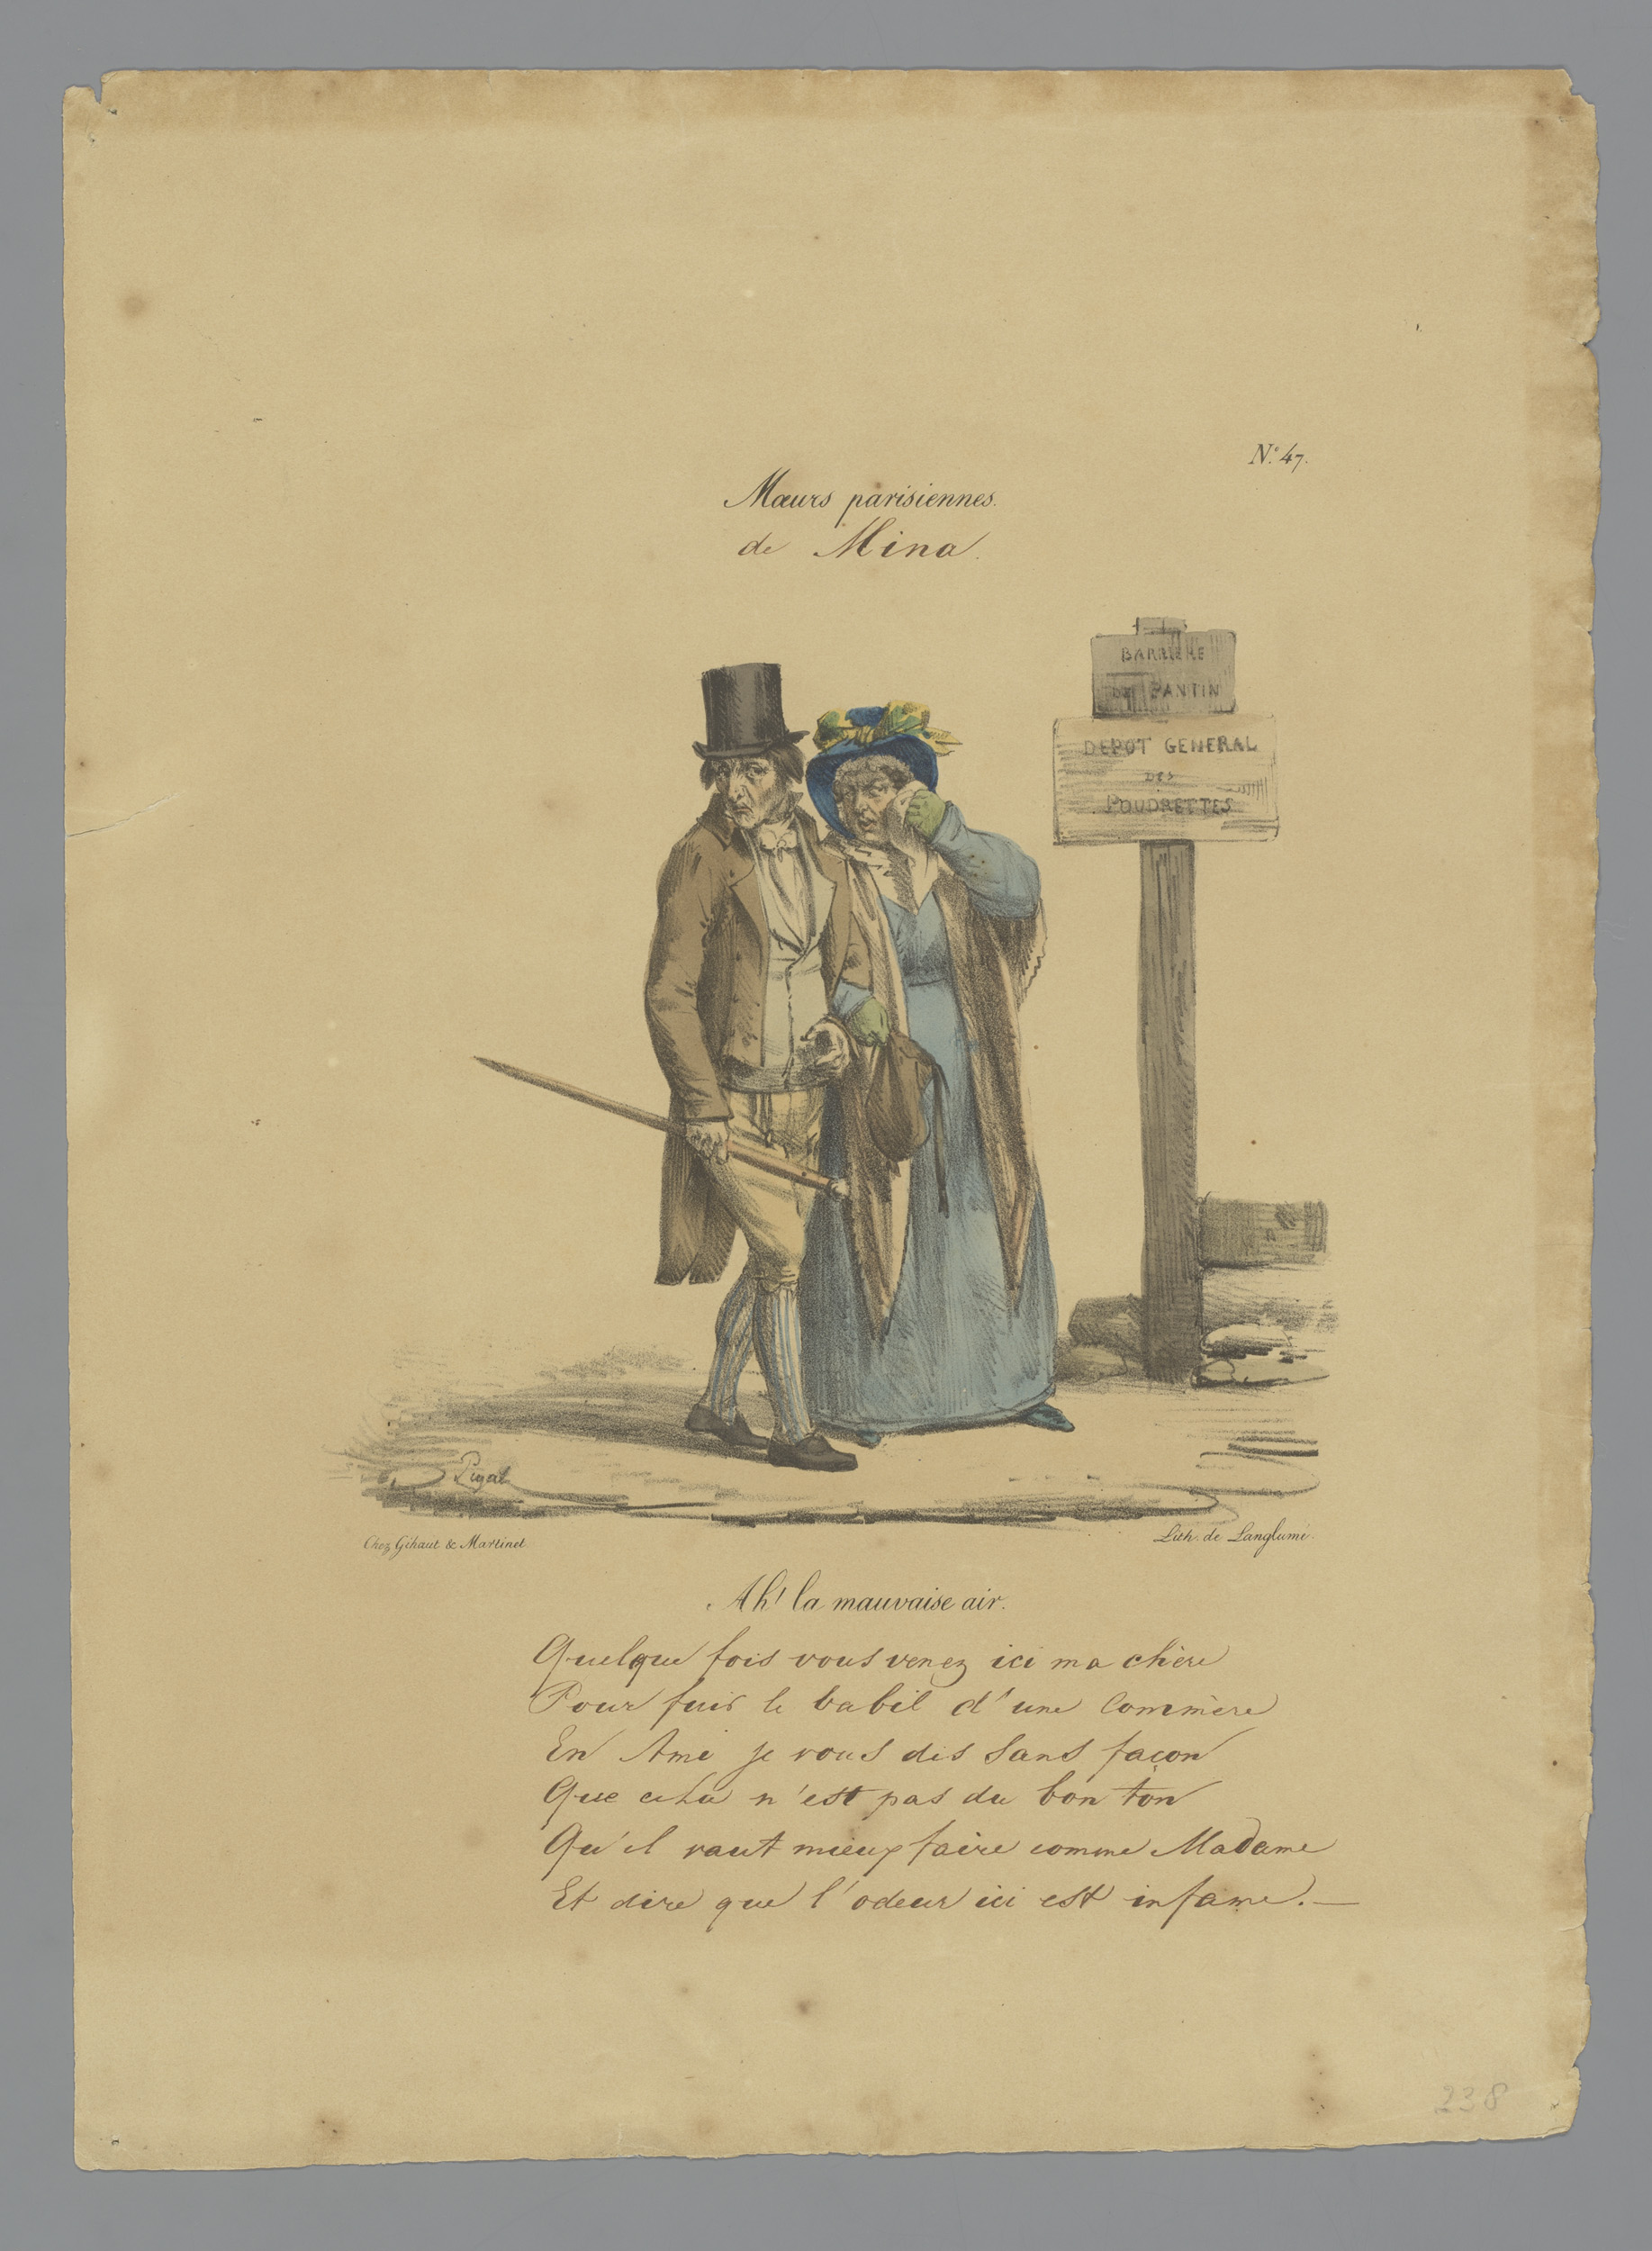 N.º 47.
Mœurs parisiennes.
de Mina.
BARRIERE
DE PANTIN
DEPOT GENERAL
DES
POUDRETTES
Pigal
Chez Gihaut & Martinet
Lith. de Langlumé.
Ah! la mauvaise air.
Quelque fois vous venez ici ma chère
Pour fuir le babil d'une Commère
En Ami je vous dis sans façon
Que cela n'est pas du bon ton
Qu'il vaut mieux faire comme Madame
Et dire que l'odeur ici est infame. —
238